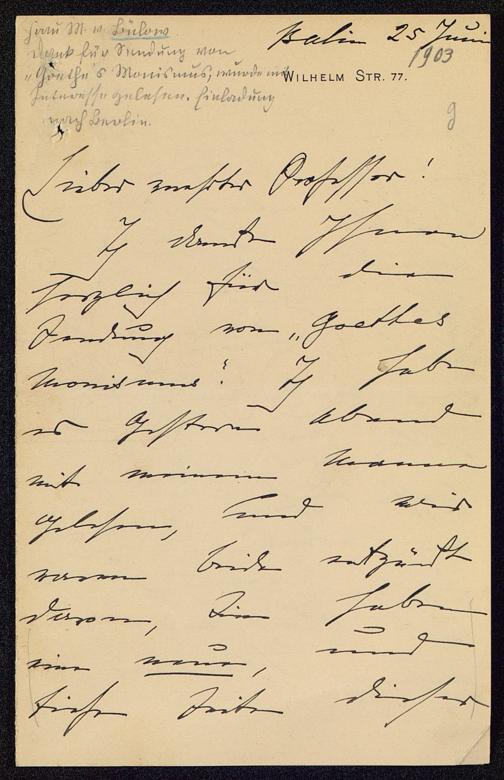 Frau M. v. Bülow
Dank für Sendung von
"Goethe's Monismus, wurde mit
Interesse gelesen. Einladung
nach Berlin.
Berlin 25 Juni
1903
WILHELM STR. 77.
g
Lieber verehrter Professor!
Ich danke Ihnen
herzlich für die
Sendung von „Goethes
Monismus". Ich habe
es gestern Abend
mit meinem Manne
gelesen, und wir
waren beide entzückt
davon, Sie haben
eine neue, und
tiefe Seite dieses